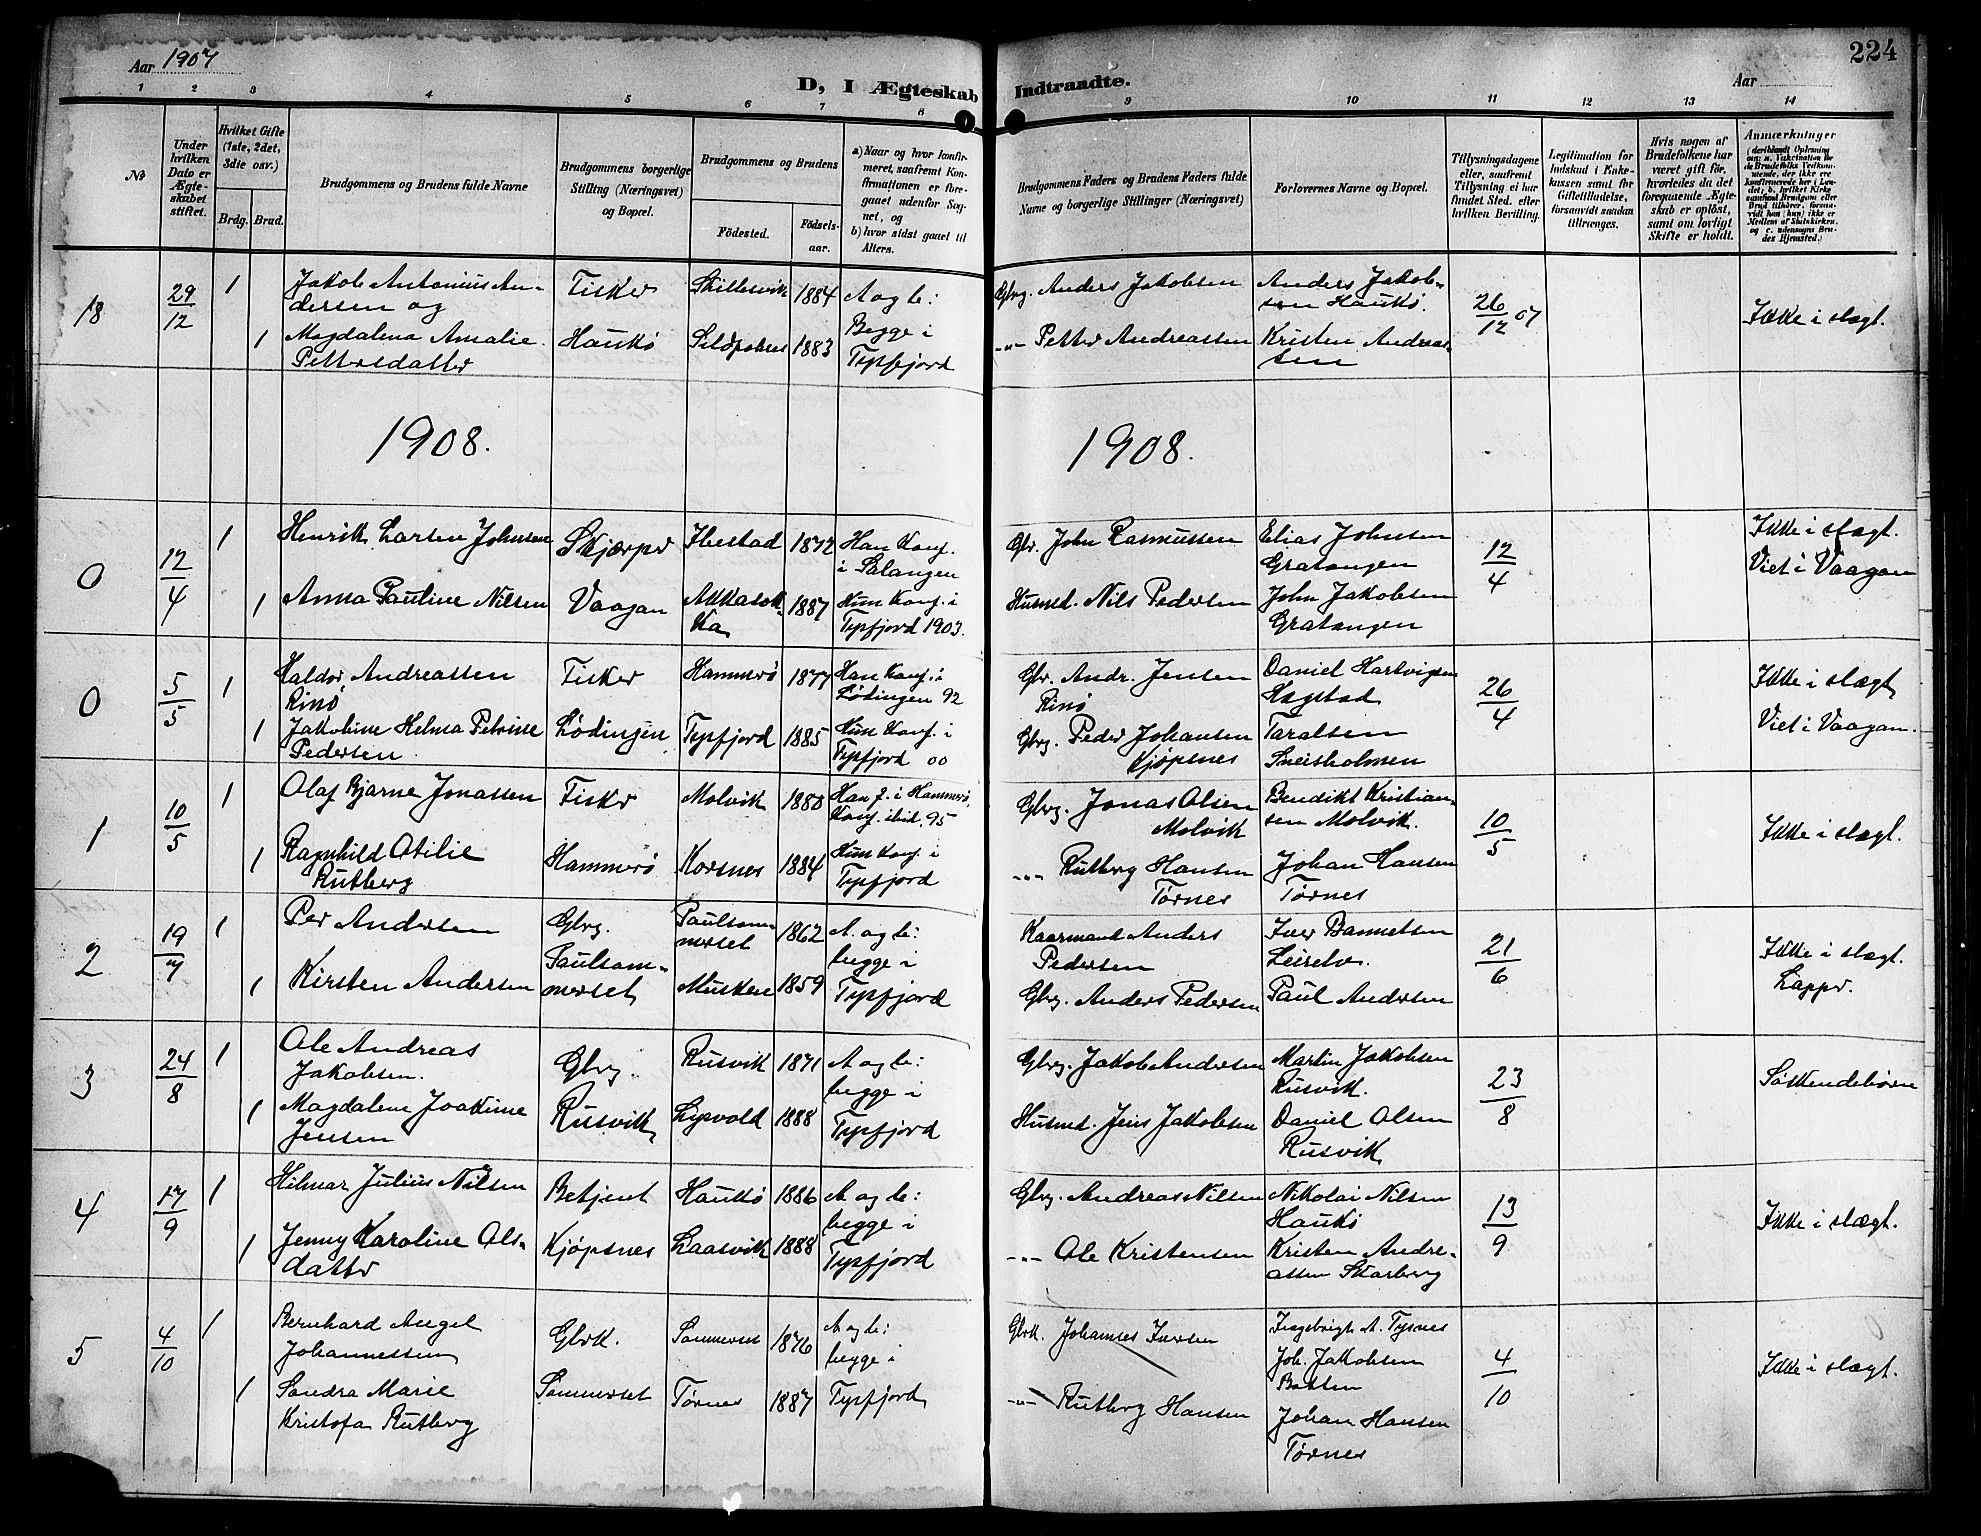 Aar 1907
D, I Ægteskab Indtraadte.
Aar
224
1 2 3 4 5 6 7 8 9 10 11 12 13 14
№
Under hvilken Dato er Ægteskabet stiftet.
Hvilket Gifte (1ste, 2det, 3die osv.)
Brdg. Brud.
Brudgommens og Brudens fulde Navne
Brudgommens borgerlige Stilling (Næringsvei) og Bopæl.
Brudgommens og Brudens
Fødested.
Fødselsaar.
a) Naar og hvor konfirmeret, saafremt Konfirmationen er foregaaet udenfor Sognet, og
b) hvor sidst gaaet til Alters.
Brudgommens Faders og Brudens Faders fulde Navne og borgerlige Stillinger (Næringsvei)
Forlovernes Navne og Bopæl.
Tillysningsdagene eller, saafremt Tillysning ei har fundet Sted, efter hvilken Bevilling.
Legitimation for Indskud i Enkekassen samt for Giftetilladelse, forsaavidt saadan tiltrænges.
Hvis nogen af Brudefolkene har været gift før, hvorledes da det foregaaende Ægteskab er opløst, samt om lovligt Skifte er holdt.
Anmærkninger
18 29/12 1 Jakob Antonius Andersen og
Fisker
Skillesvik 1884
A og b:
Gbrg. Anders Jakobsen
Anders Jakobsen Haukø.
26/12 07
Ikke i slægt.
1 Magdalena Amalie Pettersdatter
Haukø
Sildpolnes 1883
Begge i Tysfjord
-"- Petter Andreassen
Kristen Andreassen
1908.
1908.
0 12/4 1 Henrik Larsen Johnsen
Skjærpr
Ibestad 1872
Han Konf. i Salangen
Gbr. John Rasmussen
Elias Johnsen Gratangen
12/4
Ikke i slægt.
Viet i Vaagan
1 Anna Pauline Nilsen
Vaagan
1887
Hun Konf. i Tysfjord 1903.
Husmd. Nils Pedersen
John Jakobsen Gratangen
0 5/5 1 Haldor Andreassen Rinø
Fisker
Hammerø 1877
Han Konf. i Lødingen 92
Gbr. Andr. Jensen Rinø
Daniel Hartvigsen Hagstad
26/4
Ikke i slægt
Viet i Vaagan.
1 Jakobine Helma Petrine Pedersen
Lødingen
Tysfjord 1885
Hun Konf. i Tysfjord 00
Gbrg. Peder Johansen Kjøpsnes
Taralsen
1 10/5 1 Olaf Bjarne Jonassen
Fisker
Molvik 1880
Han f. i Hammerø, Konf. ibid. 95
Gbrg. Jonas Olsen Molvik
Bendikt Kristiansen Molvik.
10/5
Ikke i slægt.
1 Ragnhild Otilie Rutberg
Hammerø
Korsnes 1884
Hun Konf. i Tysfjord
-"- Rutberg Hansen Tørnes
Johan Hansen Tørnes
2 19/7 1 Per Andersen
Gbrg.
Paulsommerset 1862
A. og b: begge i Tysfjord
Kaarmand Anders Pedersen
Iver Bannetsen Leirelv.
21/6
Ikke i slægt.
Lapper.
1 Kirsten Andersen
Paulsommerset
Musken 1859
Gbrg. Anders Pedersen
Paul Andersen
3 24/8 1 Ole Andreas Jakobsen.
Gbrg.
Rusvik 1871
A og b: begge i Tysfjord
Gbrg. Jakob Andersen
Martin Jakobsen Rusvik.
23/8
Søskendebørn
1 Magdalene Joakime Jensen
Rusvik
Lysvold 1888
Husmd. Jens Jakobsen
Daniel Olsen Rusvik
4 17/9 1 Hilmar Julius Nilsen
Betjent
Haukø 1886
A og b: begge i Tysfjord
Gbrg. Andreas Nilsen
Nikolai Nilsen Haukø
13/9
Ikke i slægt.
1 Jenny Karoline Olsdatter
Kjøpsnes
Laasvik 1888
-"- Ole Kristensen
Kristen Andreassen Skarberg
5 4/10 1 Bernhard Angel Johannessen
Gbrk.
Sommerset 1876
A og b: begge i Tysfjord
Gbrk. Johannes Iversen
Ingebrigt A. Tysnes
Joh. Jakobsen Bakken
4/10
Ikke i slægt.
1 Sandra Marie Kristofa Rutberg
Sommerset
Tørnes 1887
-"- Rutberg Hansen
Johan Hansen Tørnes